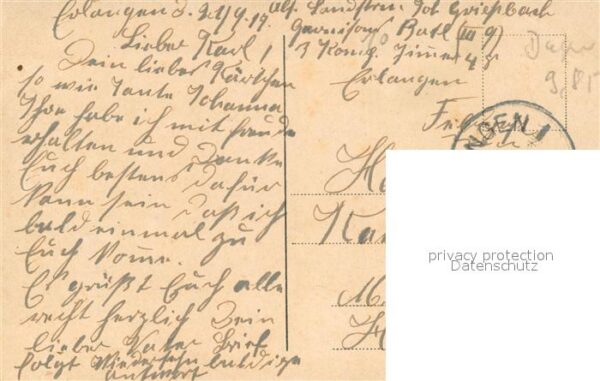 Erlangen d. 21/9.19.
Lieber Karl!
Dein liebes Kärtchen
so wie Tante Johanna
Ihre habe ich mit Freude
erhalten und Danke
Euch bestens dafür
kann sein daß ich
bald einmal zu
Euch komme.
Es grüßt Euch alle
recht herzlich Dein
lieber Vater Brief
folgt Wiedersehn baldige
Antwort
Abs. Landstrm Joh Griesbach
Garnisons Batl III
3 Komp. Zimmer
Erlangen
NGEN
privacy protection
Datenschutz